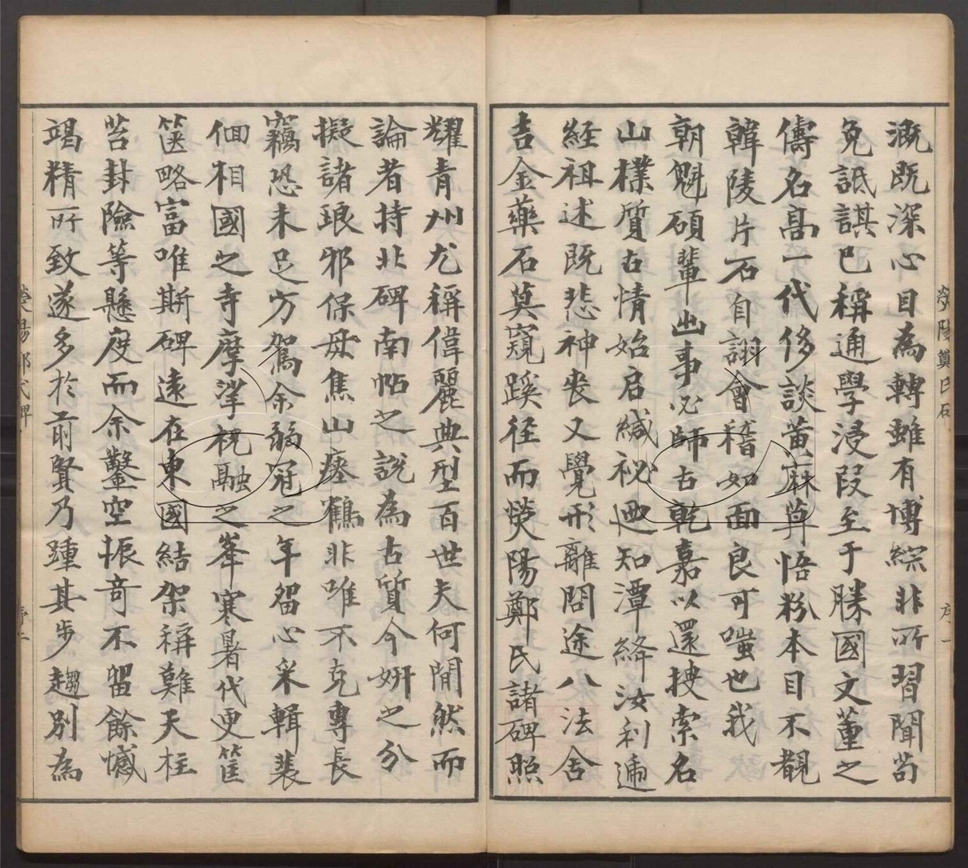 溉既深心目為轉雖有博綜非所習聞苟
免詆諆已稱通學浸叚至于勝國文董之
儔名高一代侈談黃麻罕悟粉本目不覩
韓陵片石自詡會稽如面良可嗤也我
朝魁碩輩出事必師古乾嘉以還捜索名
山樸質古情始启緘祕迺知潭絳汝利遞
経祖述既悲神丧又覺形離問途八法舍
吉金藥石莫窺蹊径而熒陽鄭氏諸碑照
熒陽鄭氏碑
序一
耀青州尤稱偉麗典型百世夫何閒然而
論者持北碑南帖之說為古質今妍之分
擬諸琅邪保母焦山瘞鶴非唯不克專長
竊恐未足方駕余弱冠之年留心采輯裴
佪相國之寺摩挲祝融之峯寒暑代更筐
篋略富唯斯碑遠在東國結架稱難天柱
苔封險等懸度而余鑿空振奇不留餘憾
竭精所致遂多於前賢乃踵其步趨別為
熒陽鄭氏碑
序二